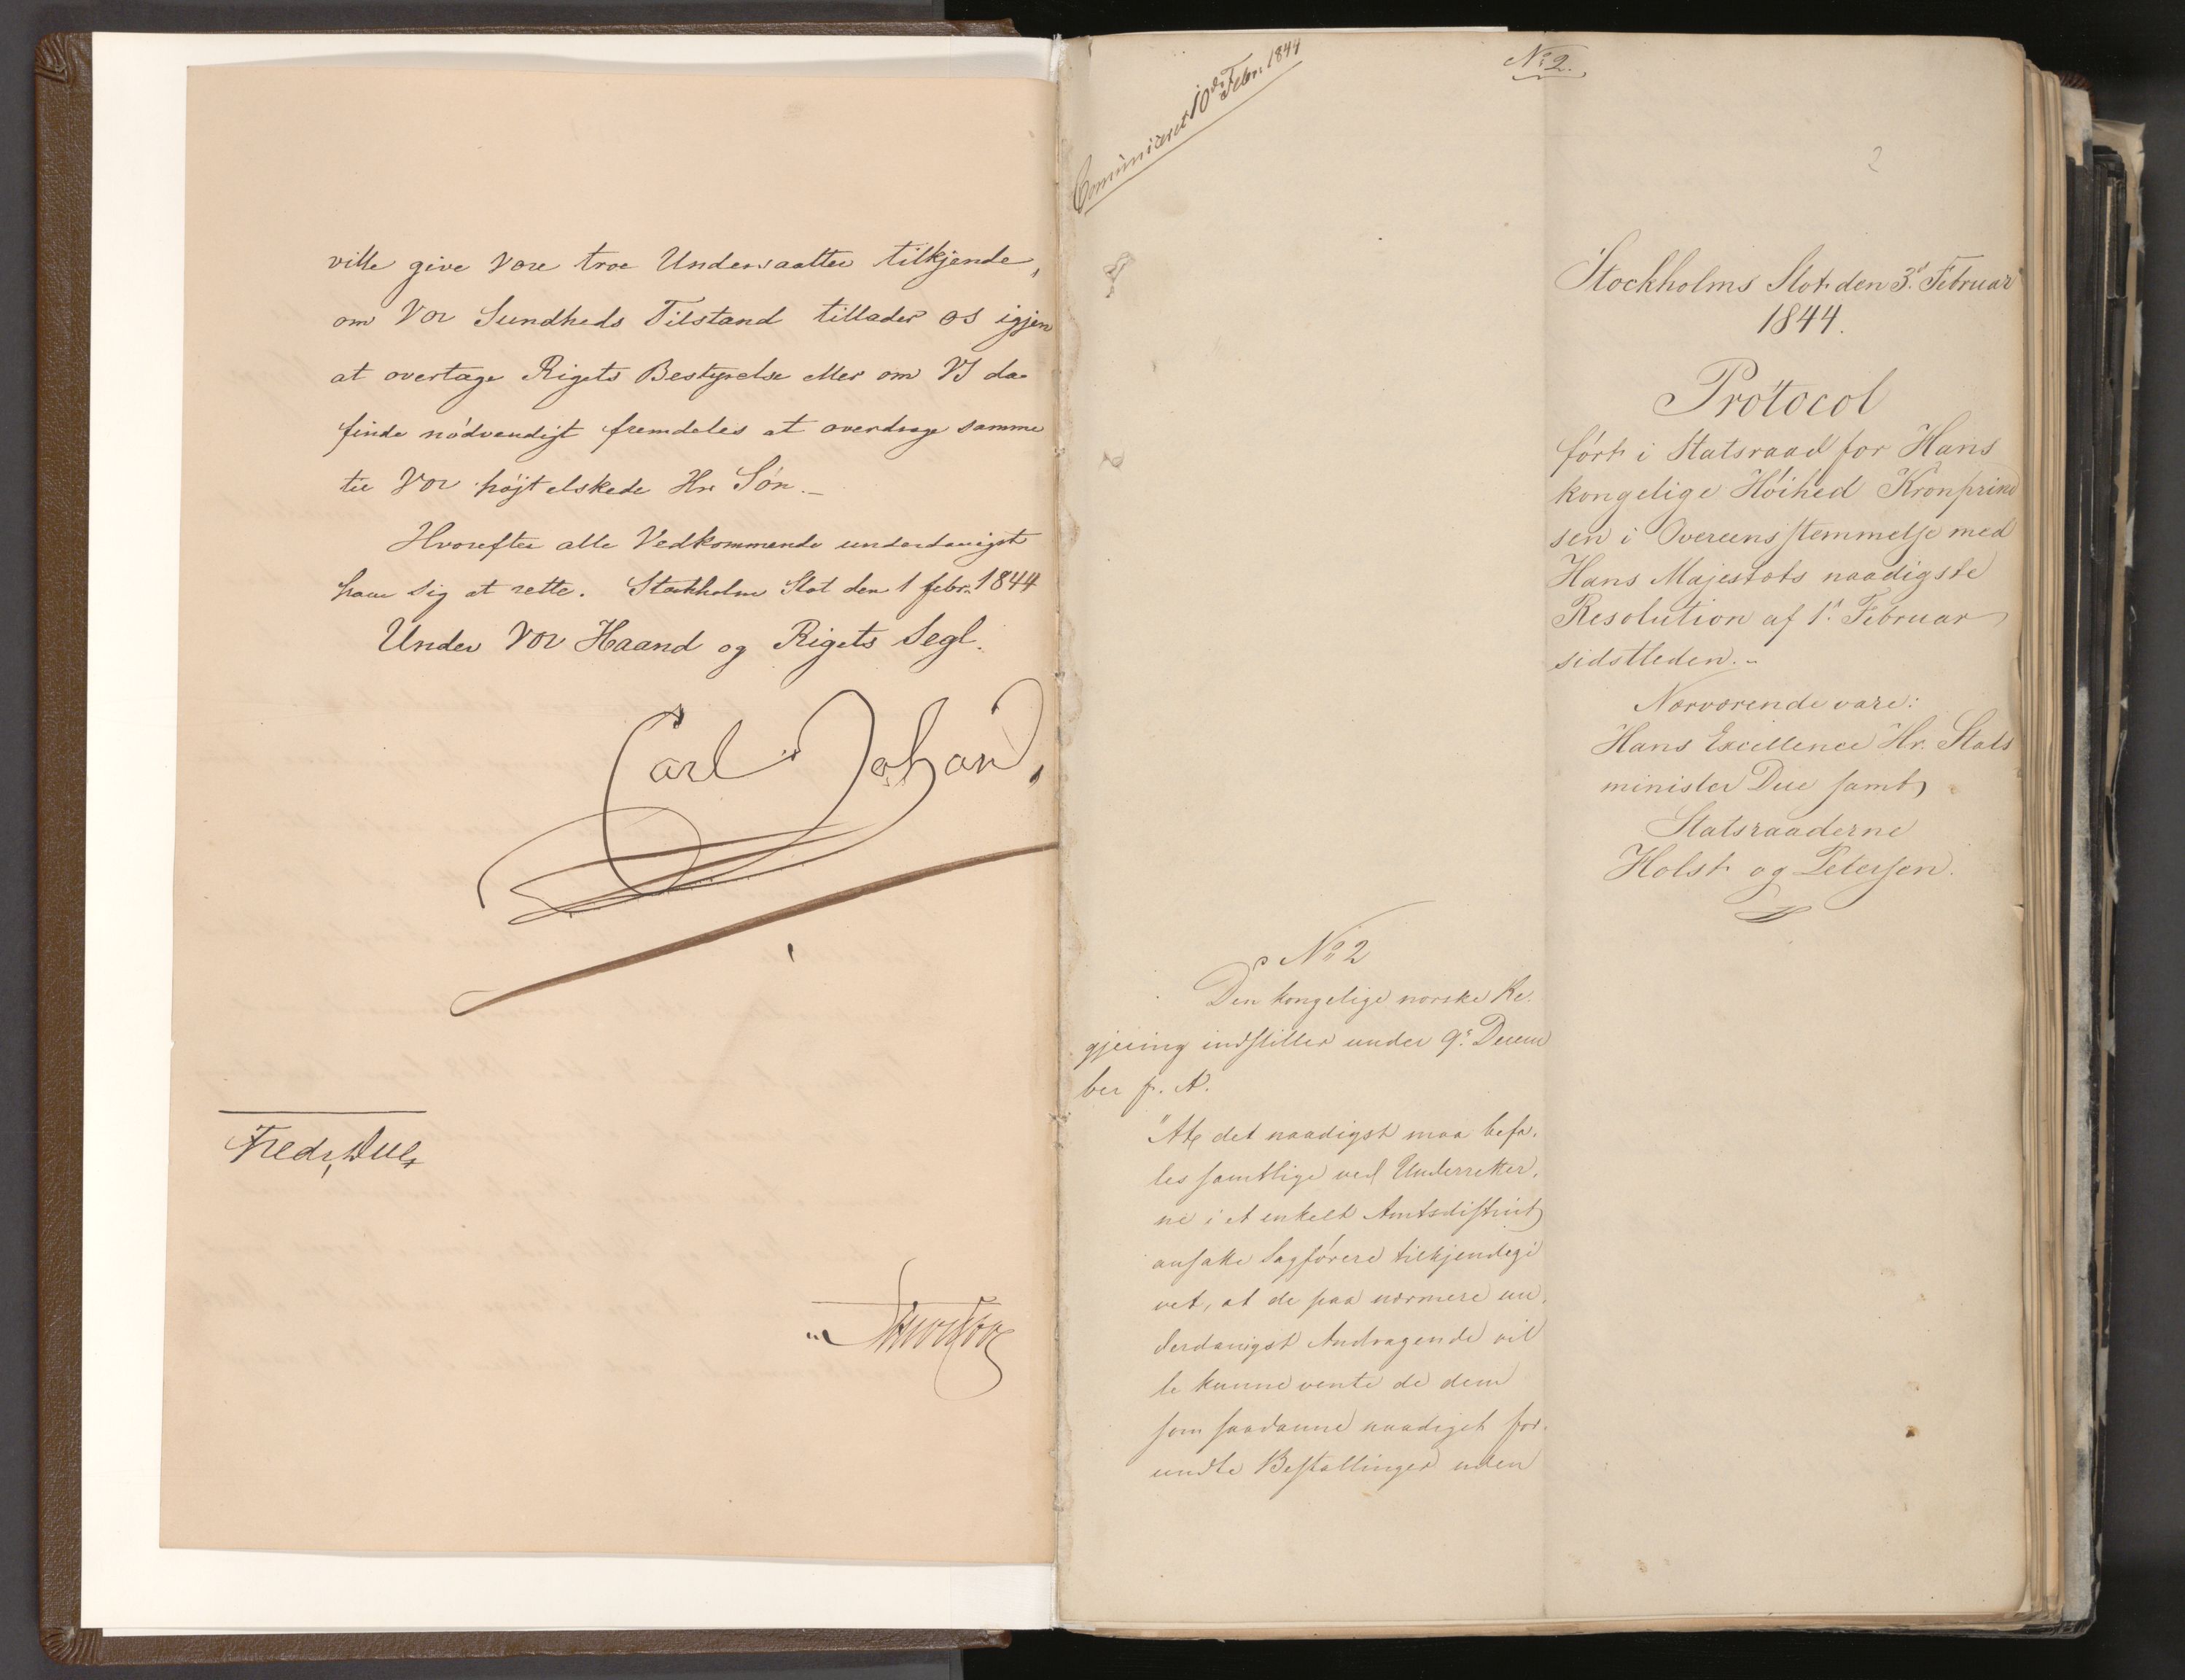 ville give Vore troe Undersaatter tilkjende,
om Vor Sundheds Tilstand tillader os igjen
at overtage Rigets Bestyrelse eller om VI da
finde nödvendigt fremdeles at overdrage samme
til Vor højt elskede Hr Sön.—
Hvorefter alle Vedkommende underdanigst
have sig at rette. Stockholms Slot den 1 febr. 1844
Under Vor Haand og Rigets Segl.
Carl Johan
Fredr. Due
Communiceret 10de Febr. 1844
No 2.
2
Stockholms Slot den 3d. Februar
1844.
Protocol
fört i Statsraad for Hans
kongelige Höihed Kronprind
sen i Overeensstemmelse med
Hans Majestæts naadigste
Resolution af 1s. Februar
sidstleden.-
Nærværende vare:
Hans Excellence Hr. Stats
minister Due samt
Statsraaderne
Holst og Petersen.
No 2
Den kongelige norske Re-
gjering indstiller under 9s. Decem
ber f. A.
"At det naadigst maa befa-
les samtlige ved Underretter-
ne i et enkelt Amtsdistrict
ansatte Sagförere tilkjendegi
vet, at de paa nærmere un-
derdanigst Andragende vil
le kunne vente de dem
som saadanne naadigst for-
undte Bestallinger uden